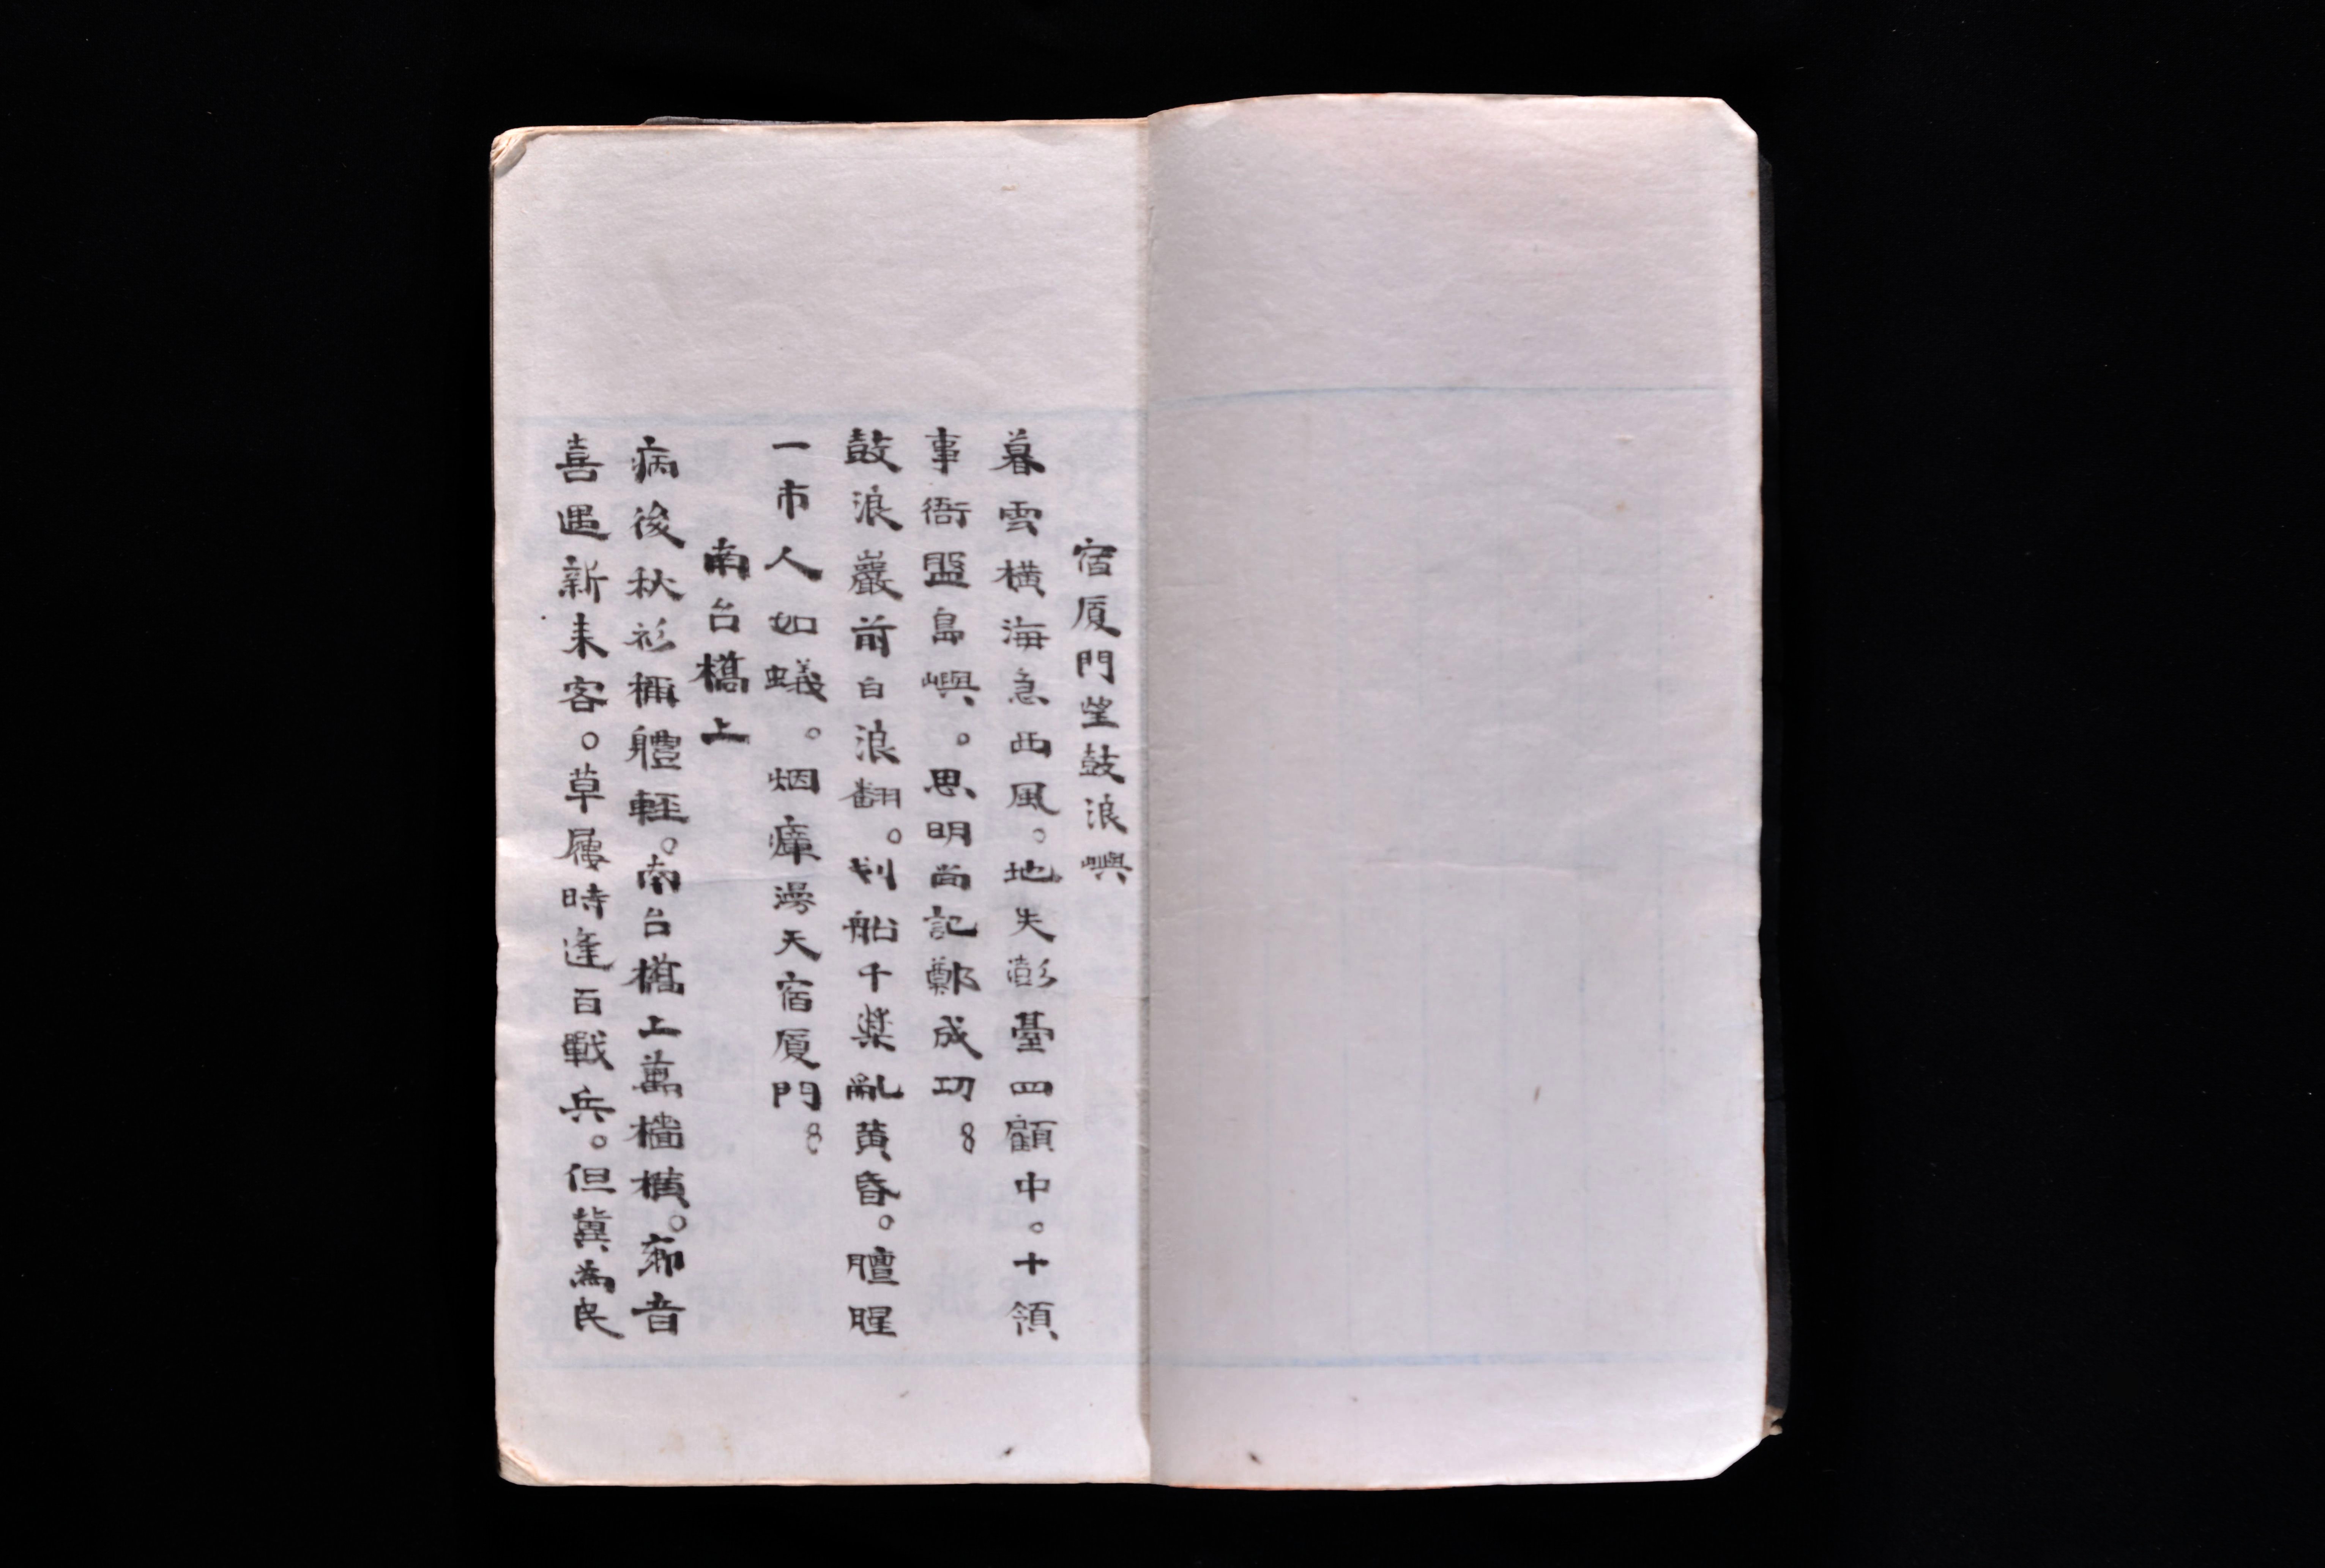 宿厦門望鼓浪嶼
暮雲橫海急西風。地失澎臺四顧中。十領
事衙盤島嶼。思明尚記鄭成功8
鼓浪巖前白浪翻。划船千槳亂黃昏。膻腥
一市人如蟻。烟瘴漫天宿厦門8
南台橋上
病後秋衫稱體輕。南台橋上萬檣橫。鄉音
喜遇新来客。草屨時逢百戰兵。但冀為民